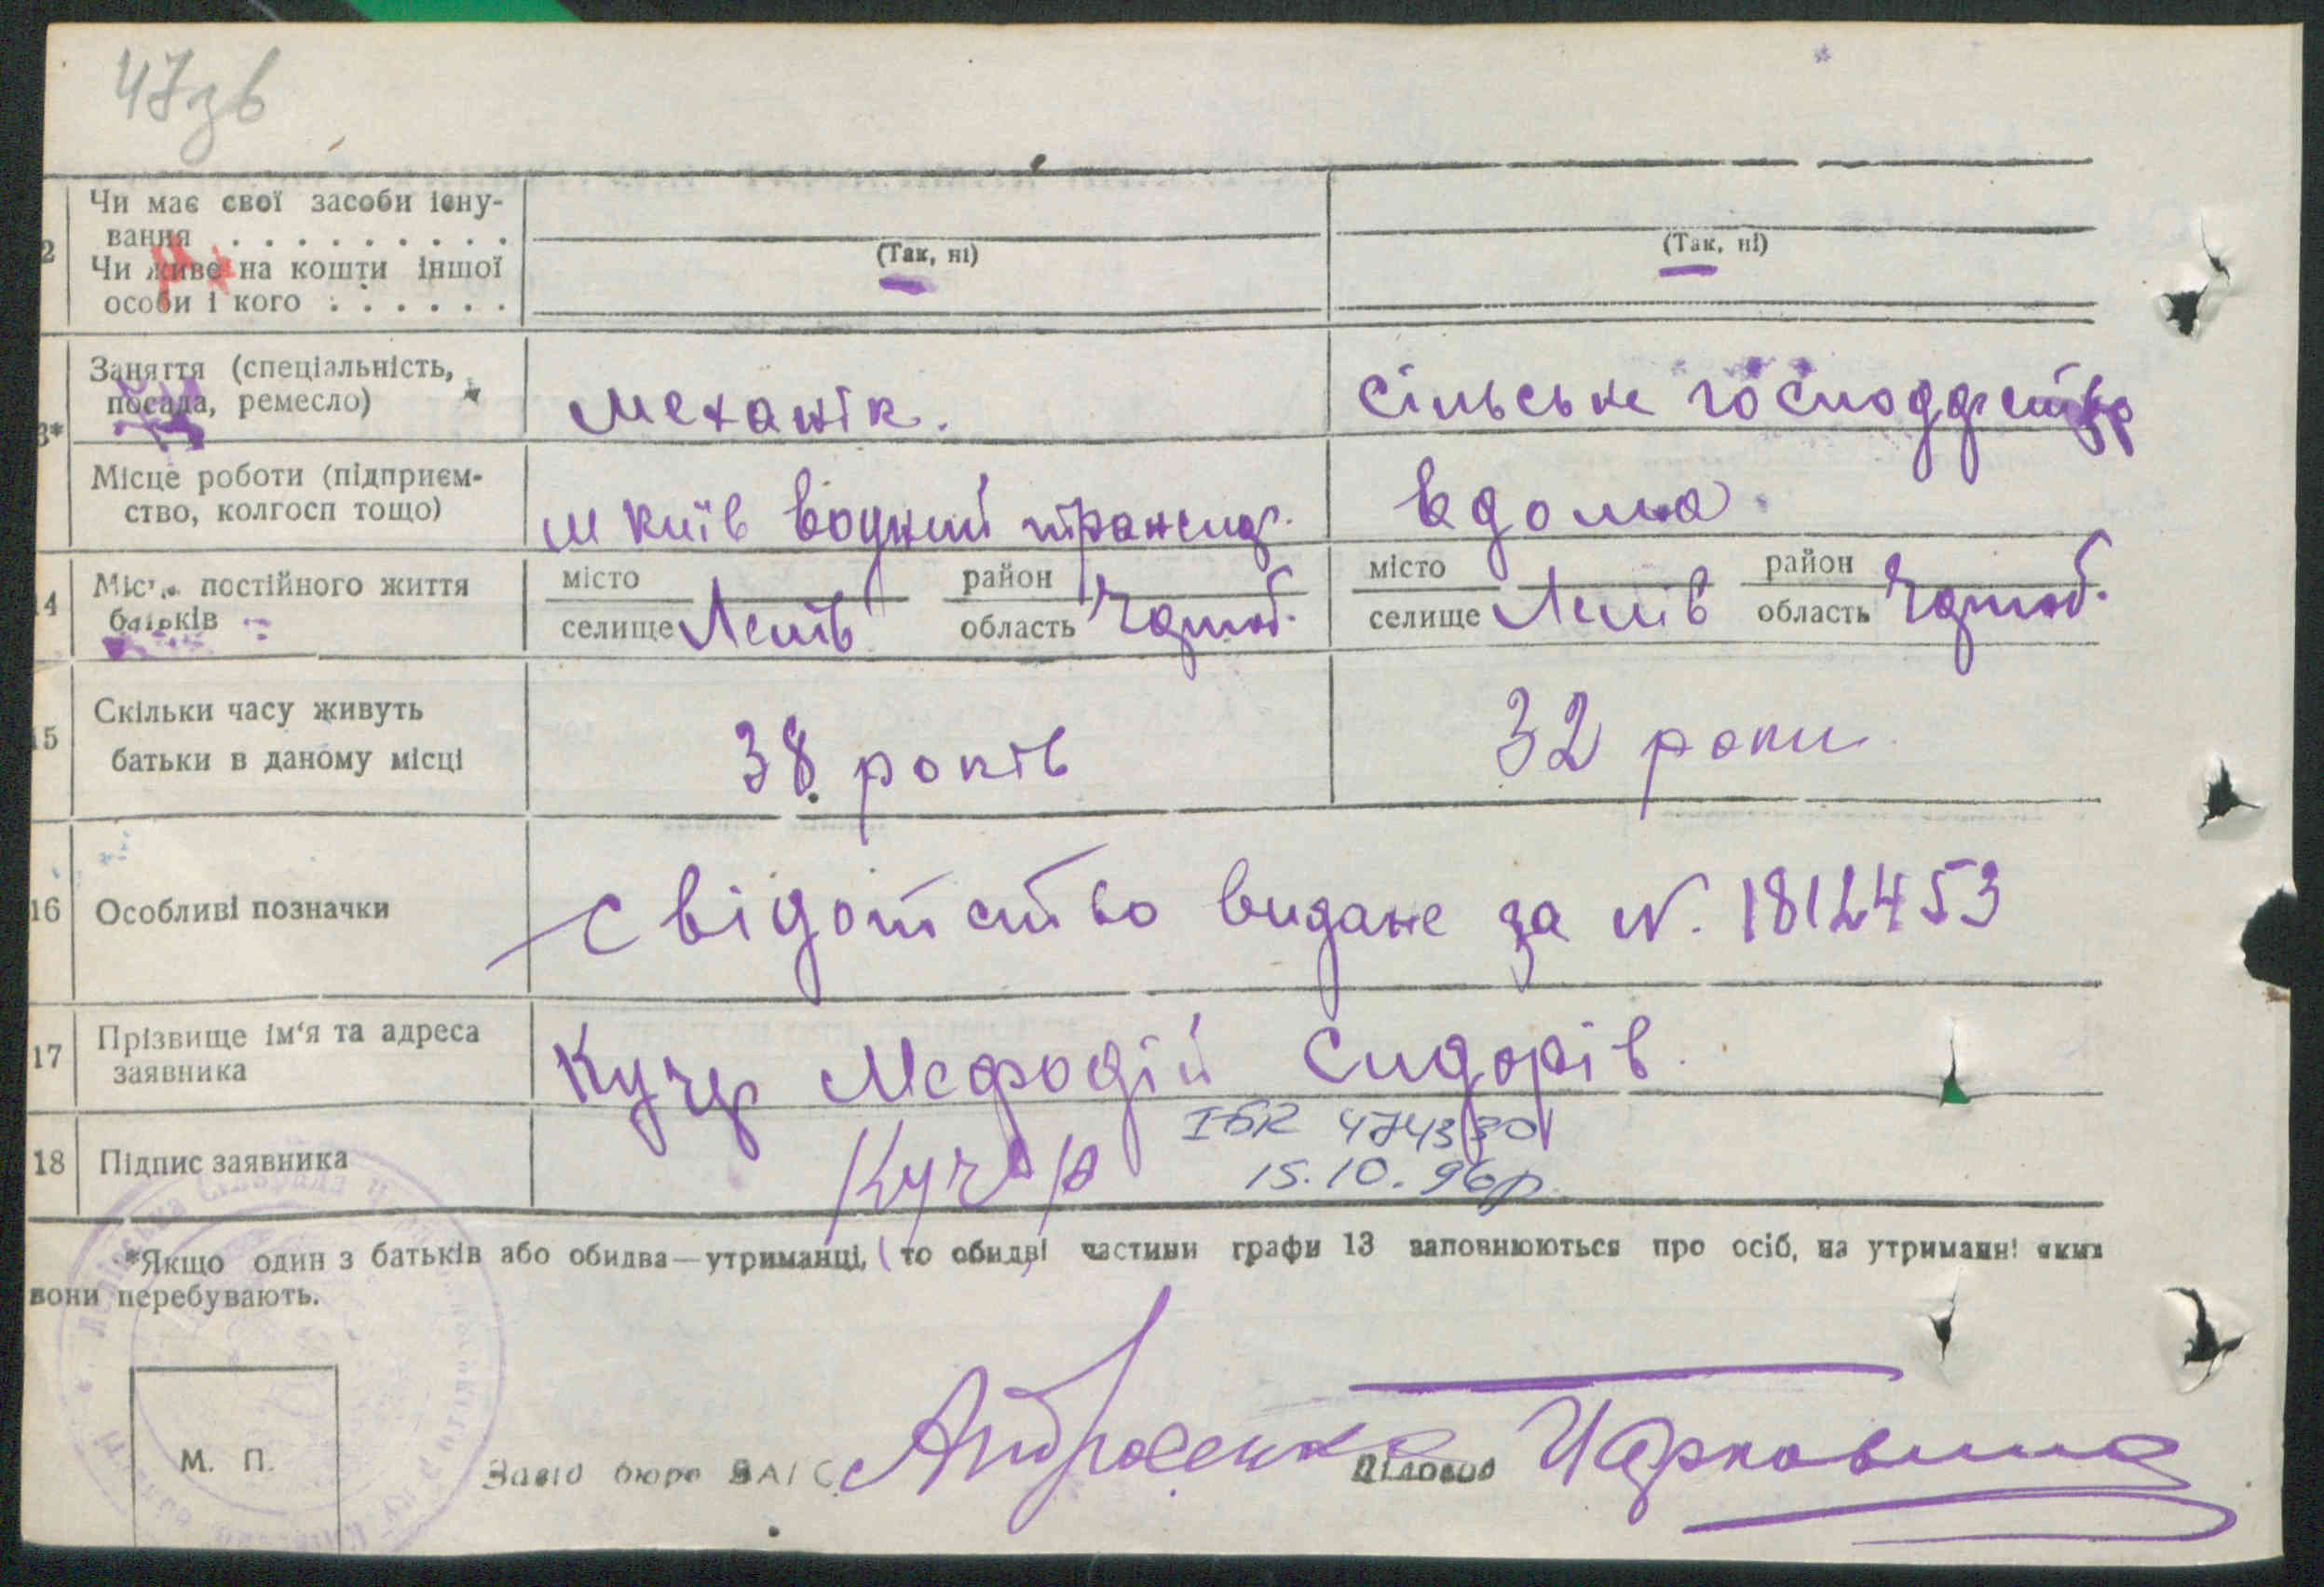 47зв
2 Чи має свої засоби існу-
вання . . . . . . . . .
Чи живе на кошти іншої
особи і кого . . . . . .
(Так, ні)
(Так, ні)
3* Заняття (спеціальність,
посада, ремесло)
механік.
сільське господдрство
Місце роботи (підприєм-
ство, колгосп тощо)
м Київ водний трансп.
вдома.
14 Місце постійного життя
батьків
місто
селище Лепів
район
область
місто
селище Лепів
район
область
15 Скільки часу живуть
батьки в даному місці
38 років
32 роки
16 Особливі позначки
свідотство видане за N. 1812453
17 Прізвище ім'я та адреса
заявника
Кучер Мефодій Сидорів.
18 Підпис заявника
Кучер
І-БК 474330
15.10.96р.
*Якщо один з батьків або обидва—утриманці, то обидві частини графи 13 заповнюються про осіб, на утриманні яких
вони перебувають.
М. П.
Завід бюро ЗАГС
Діловод